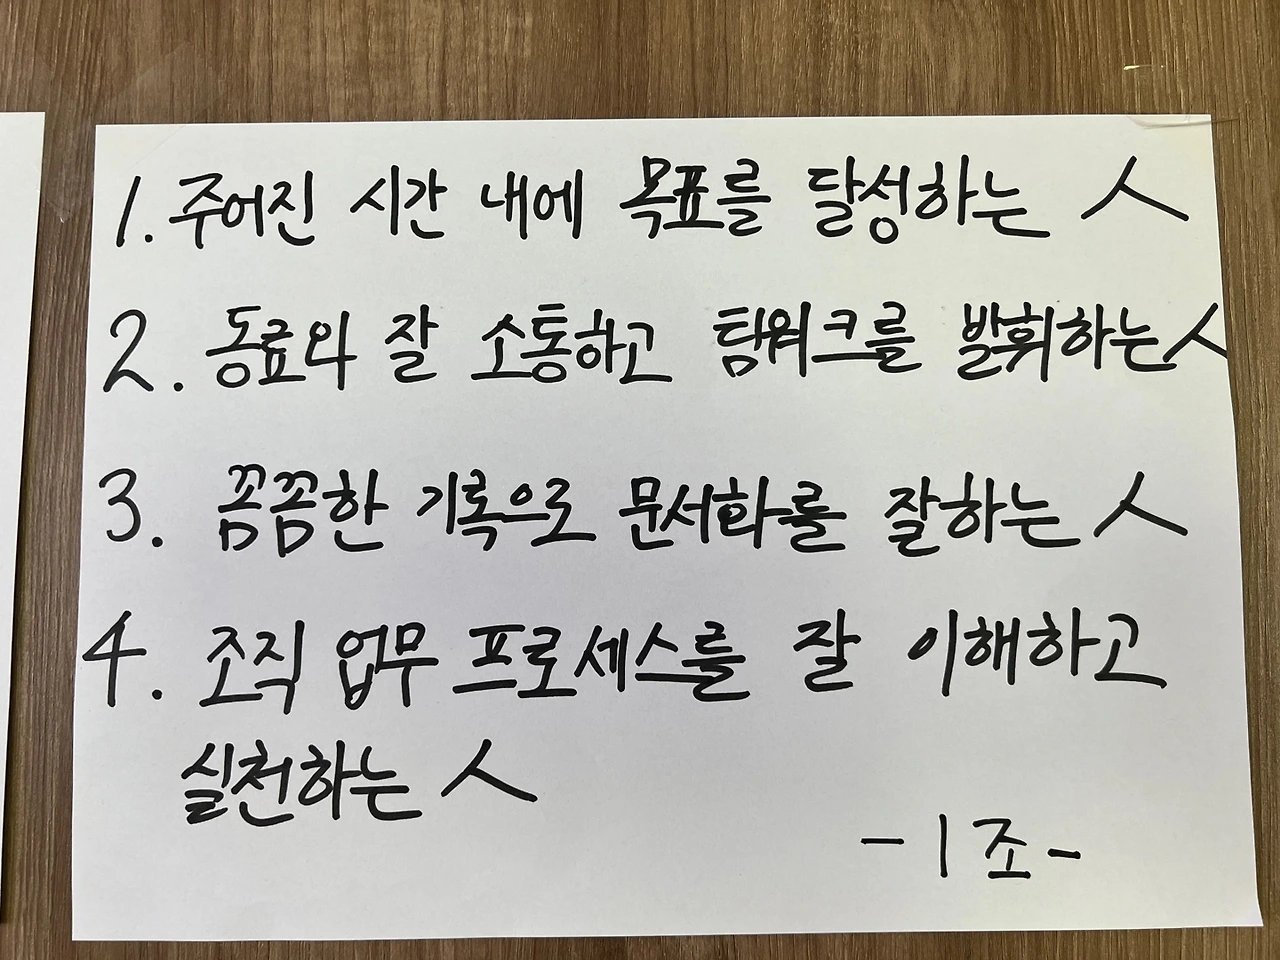 1. 주어진 시간 내에 목표를 달성하는 人
2. 동료와 잘 소통하고 팀워크를 발휘하는 人
3. 꼼꼼한 기록으로 문서화를 잘하는 人
4. 조직 업무 프로세스를 잘 이해하고
실천하는 人
- 1조 -